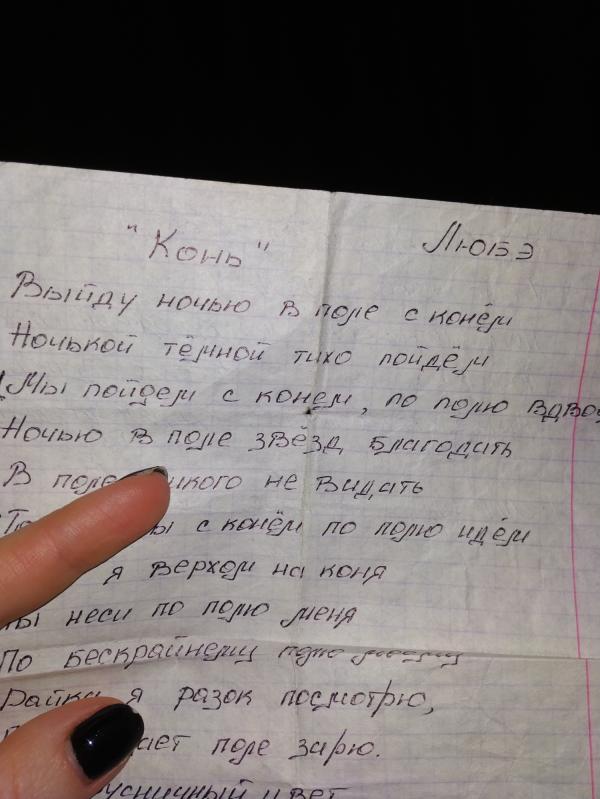 "Конь" ЛЮБЭ
Выйду ночью в поле с конём
Ночькой тёмной тихо пойдём
Мы пойдем с конем, по полю вдво
Ночью в поле звёзд благодать
В поле никого не видать
с конём по полю идём
я верхом на коня
неси по полю меня
По бескрайнему полю моему
я разок посмотрю,
поле зарю.
цвет